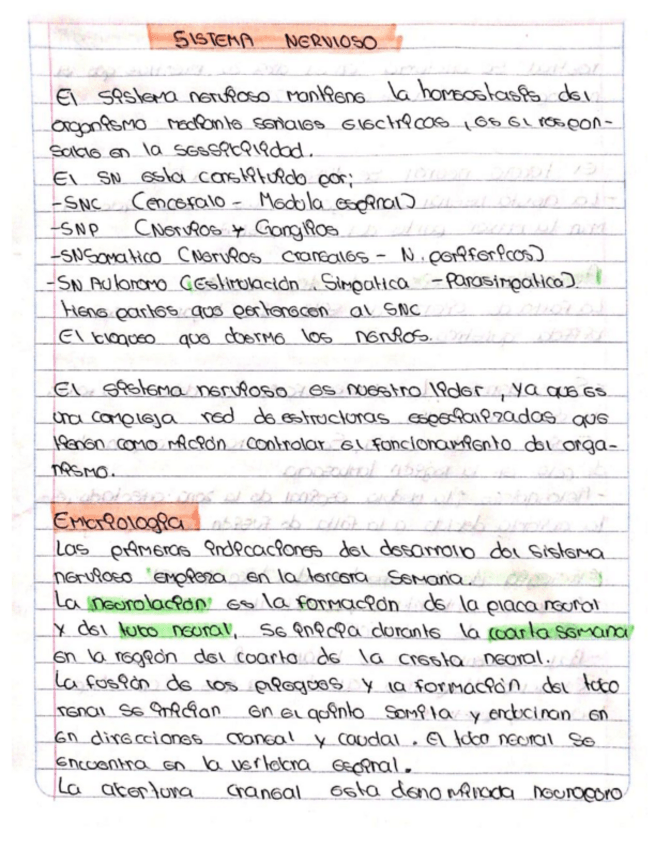 SISTEMA NERVIOSO
El sistema nervioso mantiene la homeostasis del
organismo mediante señales electricas, es el respon-
sable en la sensibilidad.
El SN esta constituido por;
-SNC (encefalo - Medula espinal)
-SNP (Nervios y Ganglios
-SNSomatico (Nervios craneales - N. perifericos)
-SN Autonomo (Estimulación Simpatica - Parasimpatico).
tiene partes que pertenecen al SNC
El bloqueo que duerme los nervios.
El sistema nervioso es nuestro lider, ya que es
una compleja red de estructuras especializadas que
tienen como misión controlar el funcionamiento del orga-
nismo.
Embriologia
Las primeras indicaciones del desarrollo del sistema
nervioso empieza en la tercera semana.
La neurolación es la formación de la placa neural
y del tubo neural, se inicia durante la cuarta semana
en la región del cuarto de la cresta neural.
La fusión de los pliegues y la formación del tubo
renal se inician en el quinto somita y
en direcciones craneal y caudal. El tubo neural se
encuentra en la vertebra espinal.
La abertura craneal esta denominada neuroporo